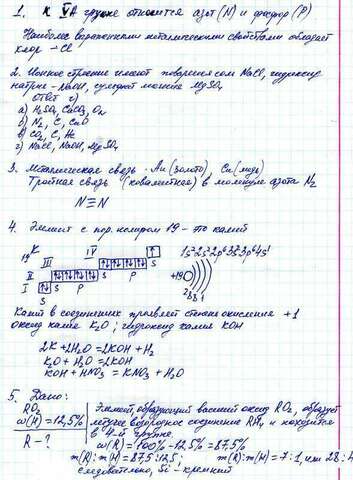 1. К VA группе относится азот (N) и фосфор (P)
Наиболее выраженными металлическими свойствами обладает
хлор - Cl
2. Ионное строение имеют поваренная соль NaCl, гидроксид
натрия - NaOH, сульфат магния MgSO₄
Ответ г)
а) H₂SO₄, CaCO₃, O₂
б) N₂, C, CuO
в) CO₂, C, He
г) NaCl, NaOH, MgSO₄
3. Металлическая связь - Au (золото) Cu (медь)
Тройная связь (ковалентная) в молекуле азота N₂
N≡N
4. Элемент с пор. номером 19 - это калий
₁₉K IV ↑ 1s²2s²2p⁶3s²3p⁶4s¹
III ↑↓ ↑↓ ↑↓ ↑↓ s
II ↑↓ ↑↓ ↑↓ ↑↓ s p +19
I ↑↓ s p 2 8 8 1
s
Калий в соединениях проявляет степень окисления +1
оксид калия K₂O; гидроксид калия KOH
2K + 2H₂O = 2KOH + H₂
K₂O + H₂O = 2KOH
KOH + HNO₃ = KNO₃ + H₂O
5. Дано:
RO₂ Элемент, образующий высший оксид RO₂, образует
ω(H) = 12,5% летучее водородное соединение RH₄ и находится
в 4-й группе
R - ? ω(R) = 100% - 12,5% = 87,5%
m(R):m(H) = 87,5:12,5; m(R):m(H) = 7:1, или 28:4
следовательно, Si - кремний